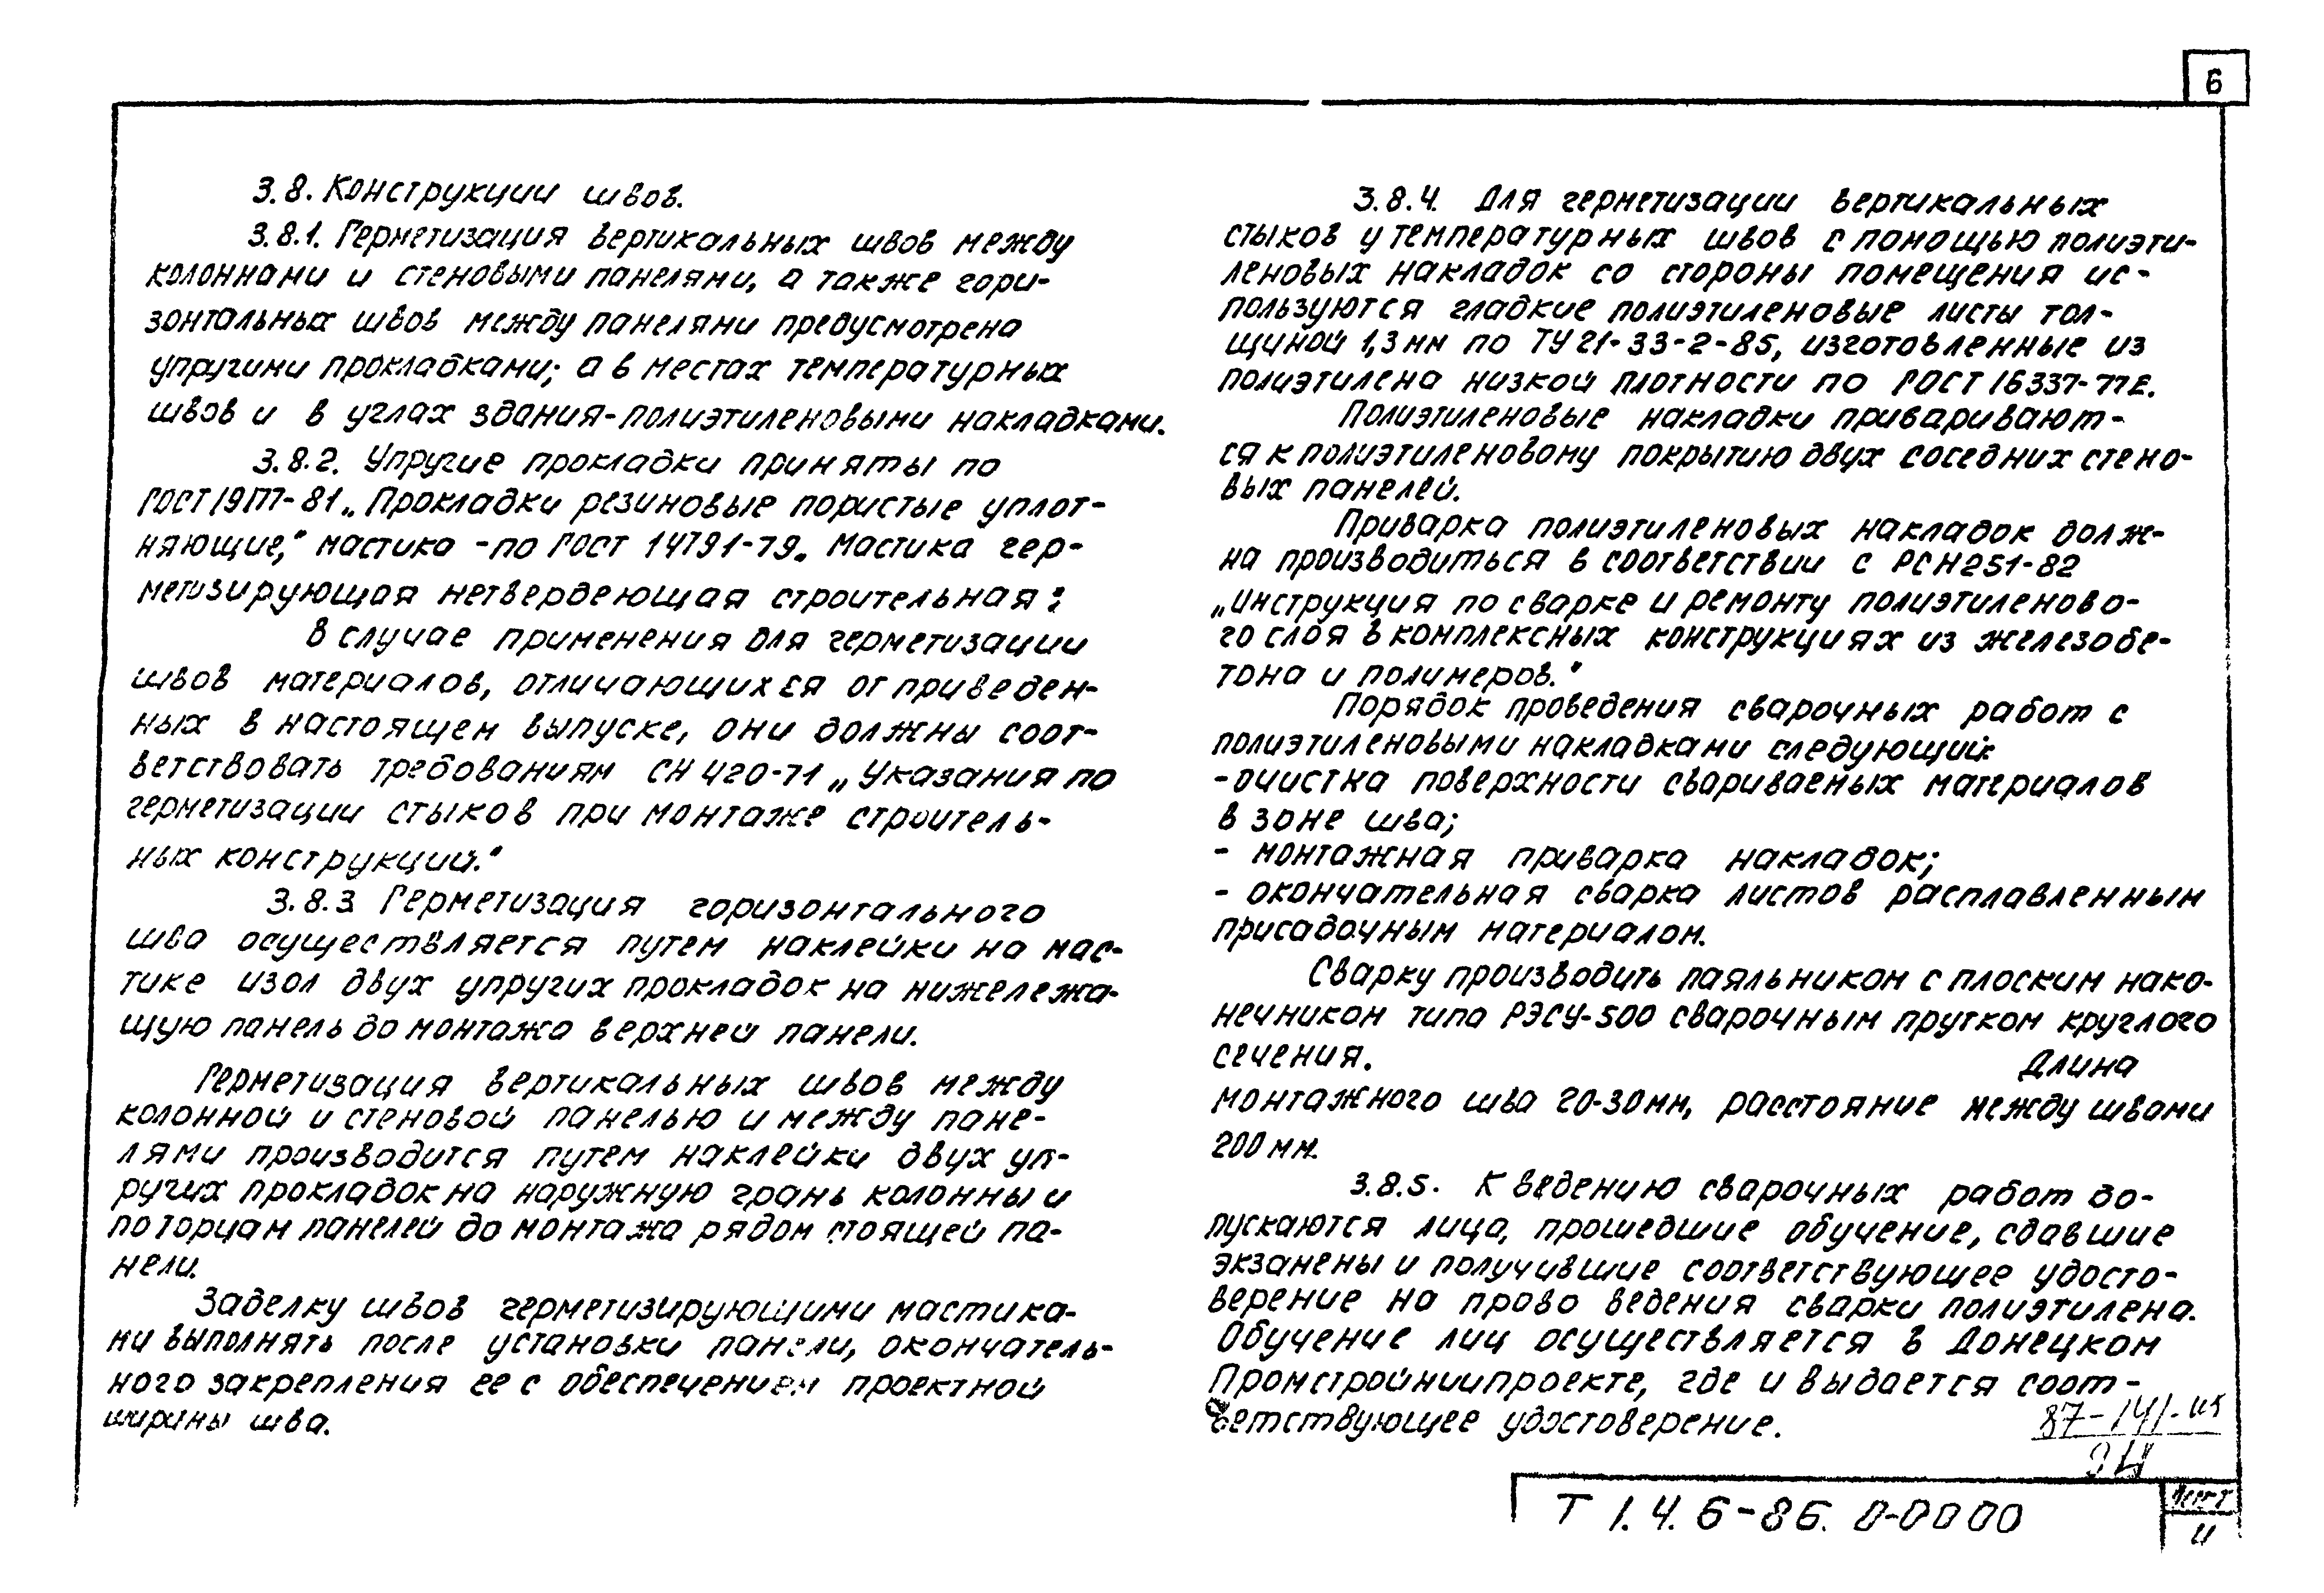 6
3.8. Конструкции швов.
3.8.1. Герметизация вертикальных швов между
колоннами и стеновыми панелями, а также гори-
зонтальных швов между панелями предусмотрена
упругими прокладками; а в местах температурных
швов и в углах здания-полиэтиленовыми накладками.
3.8.2. Упругие прокладки приняты по
ГОСТ 19177-81 „Прокладки резиновые пористые уплот-
няющие," мастика -по ГОСТ 14791-79 „ Мастика гер-
метизирующая нетвердеющая строительная".
В случае применения для герметизации
швов материалов, отличающихся от приведен-
ных в настоящем выпуске, они должны соот-
ветствовать требованиям СН 420-71 „Указания по
герметизации стыков при монтаже строитель-
ных конструкций."
3.8.3 Герметизация горизонтального
шва осуществляется путем наклейки на мас-
тике изол двух упругих прокладок на нижележа-
щую панель до монтажа верхней панели.
Герметизация вертикальных швов между
колонной и стеновой панелью и между пане-
лями производится путем наклейки двух уп-
ругих прокладок на наружную грань колонны и
по торцам панелей до монтажа рядом стоящей па-
нели.
Заделку швов герметизирующими мастика-
ми выполнять после установки панели, окончатель-
ного закрепления ее с обеспечением проектной
ширины шва.
3.8.4. Для герметизации вертикальных
стыков у температурных швов с помощью полиэти-
леновых накладок со стороны помещения ис-
пользуются гладкие полиэтиленовые листы тол-
щиной 1,3 мм по ТУ 21-33-2-85, изготовленные из
полиэтилена низкой плотности по ГОСТ 16337-77Е.
Полиэтиленовые накладки приваривают-
ся к полиэтиленовому покрытию двух соседних стено-
вых панелей.
Приварка полиэтиленовых накладок долж-
на производиться в соответствии с РСН 251-82
„Инструкция по сварке и ремонту полиэтиленово-
го слоя в комплексных конструкциях из железобе-
тона и полимеров."
Порядок проведения сварочных работ с
полиэтиленовыми накладками следующий:
-очистка поверхности свариваемых материалов
в зоне шва;
- монтажная приварка накладок;
- окончательная сварка листов расплавленным
присадочным материалом.
Сварку производить паяльником с плоским нако-
нечником типа РЭСУ-500 сварочным прутком круглого
сечения. Длина
монтажного шва 20-30мм, расстояние между швами
200 мм.
3.8.5. К ведению сварочных работ до-
пускаются лица, прошедшие обучение, сдавшие
экзамены и получившие соответствующее удосто-
верение на право ведения сварки полиэтилена.
Обучение лиц осуществляется в Донецком
Промстройниипроекте, где и выдается соот-
ветствующее удостоверение.
87-141-
Т 1.4.6-86. 0-0000
Лист